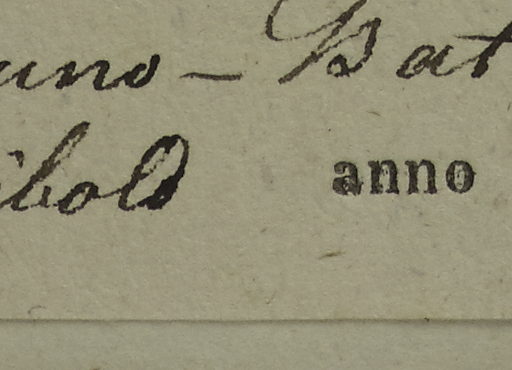 uno – Bat
ibold anno